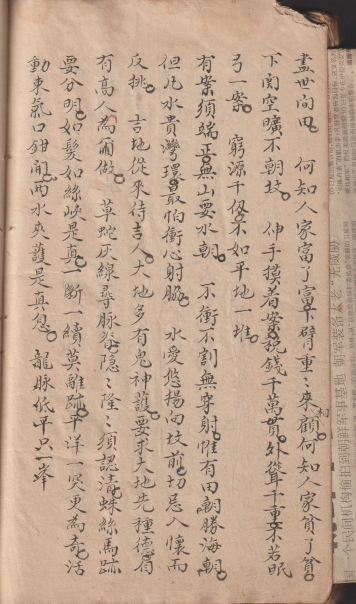 盡世间田。 何知人家富了富。下臂重〻來相顧。何知人家貧了貧。
下関空曠不朝坟。 伸手摸着案。税錢千萬貫。外聳千重。不若眠
弓一案。 窮源千仭。不如平地一堆。
有案須端正。無山要水朝。 不衝不割無穿射。惟有田朝勝海朝。
但凢水貴灣環。最怕衝心射脇。 水爱悠揚向坟前。切忌入懷而
反挑。 吉地從來待吉人。大地多有鬼神護。要求大地先種德。自
有高人為爾做。 草蛇灰線尋脉。隐〻隆〻須認清。蛛絲馬跡
要分明。如髪如絲峽是真。一斷一續莫離跡。平洋一突更為奇。活
動束氣口钳開。両水夾護是真息。 龍脉低平只一峯